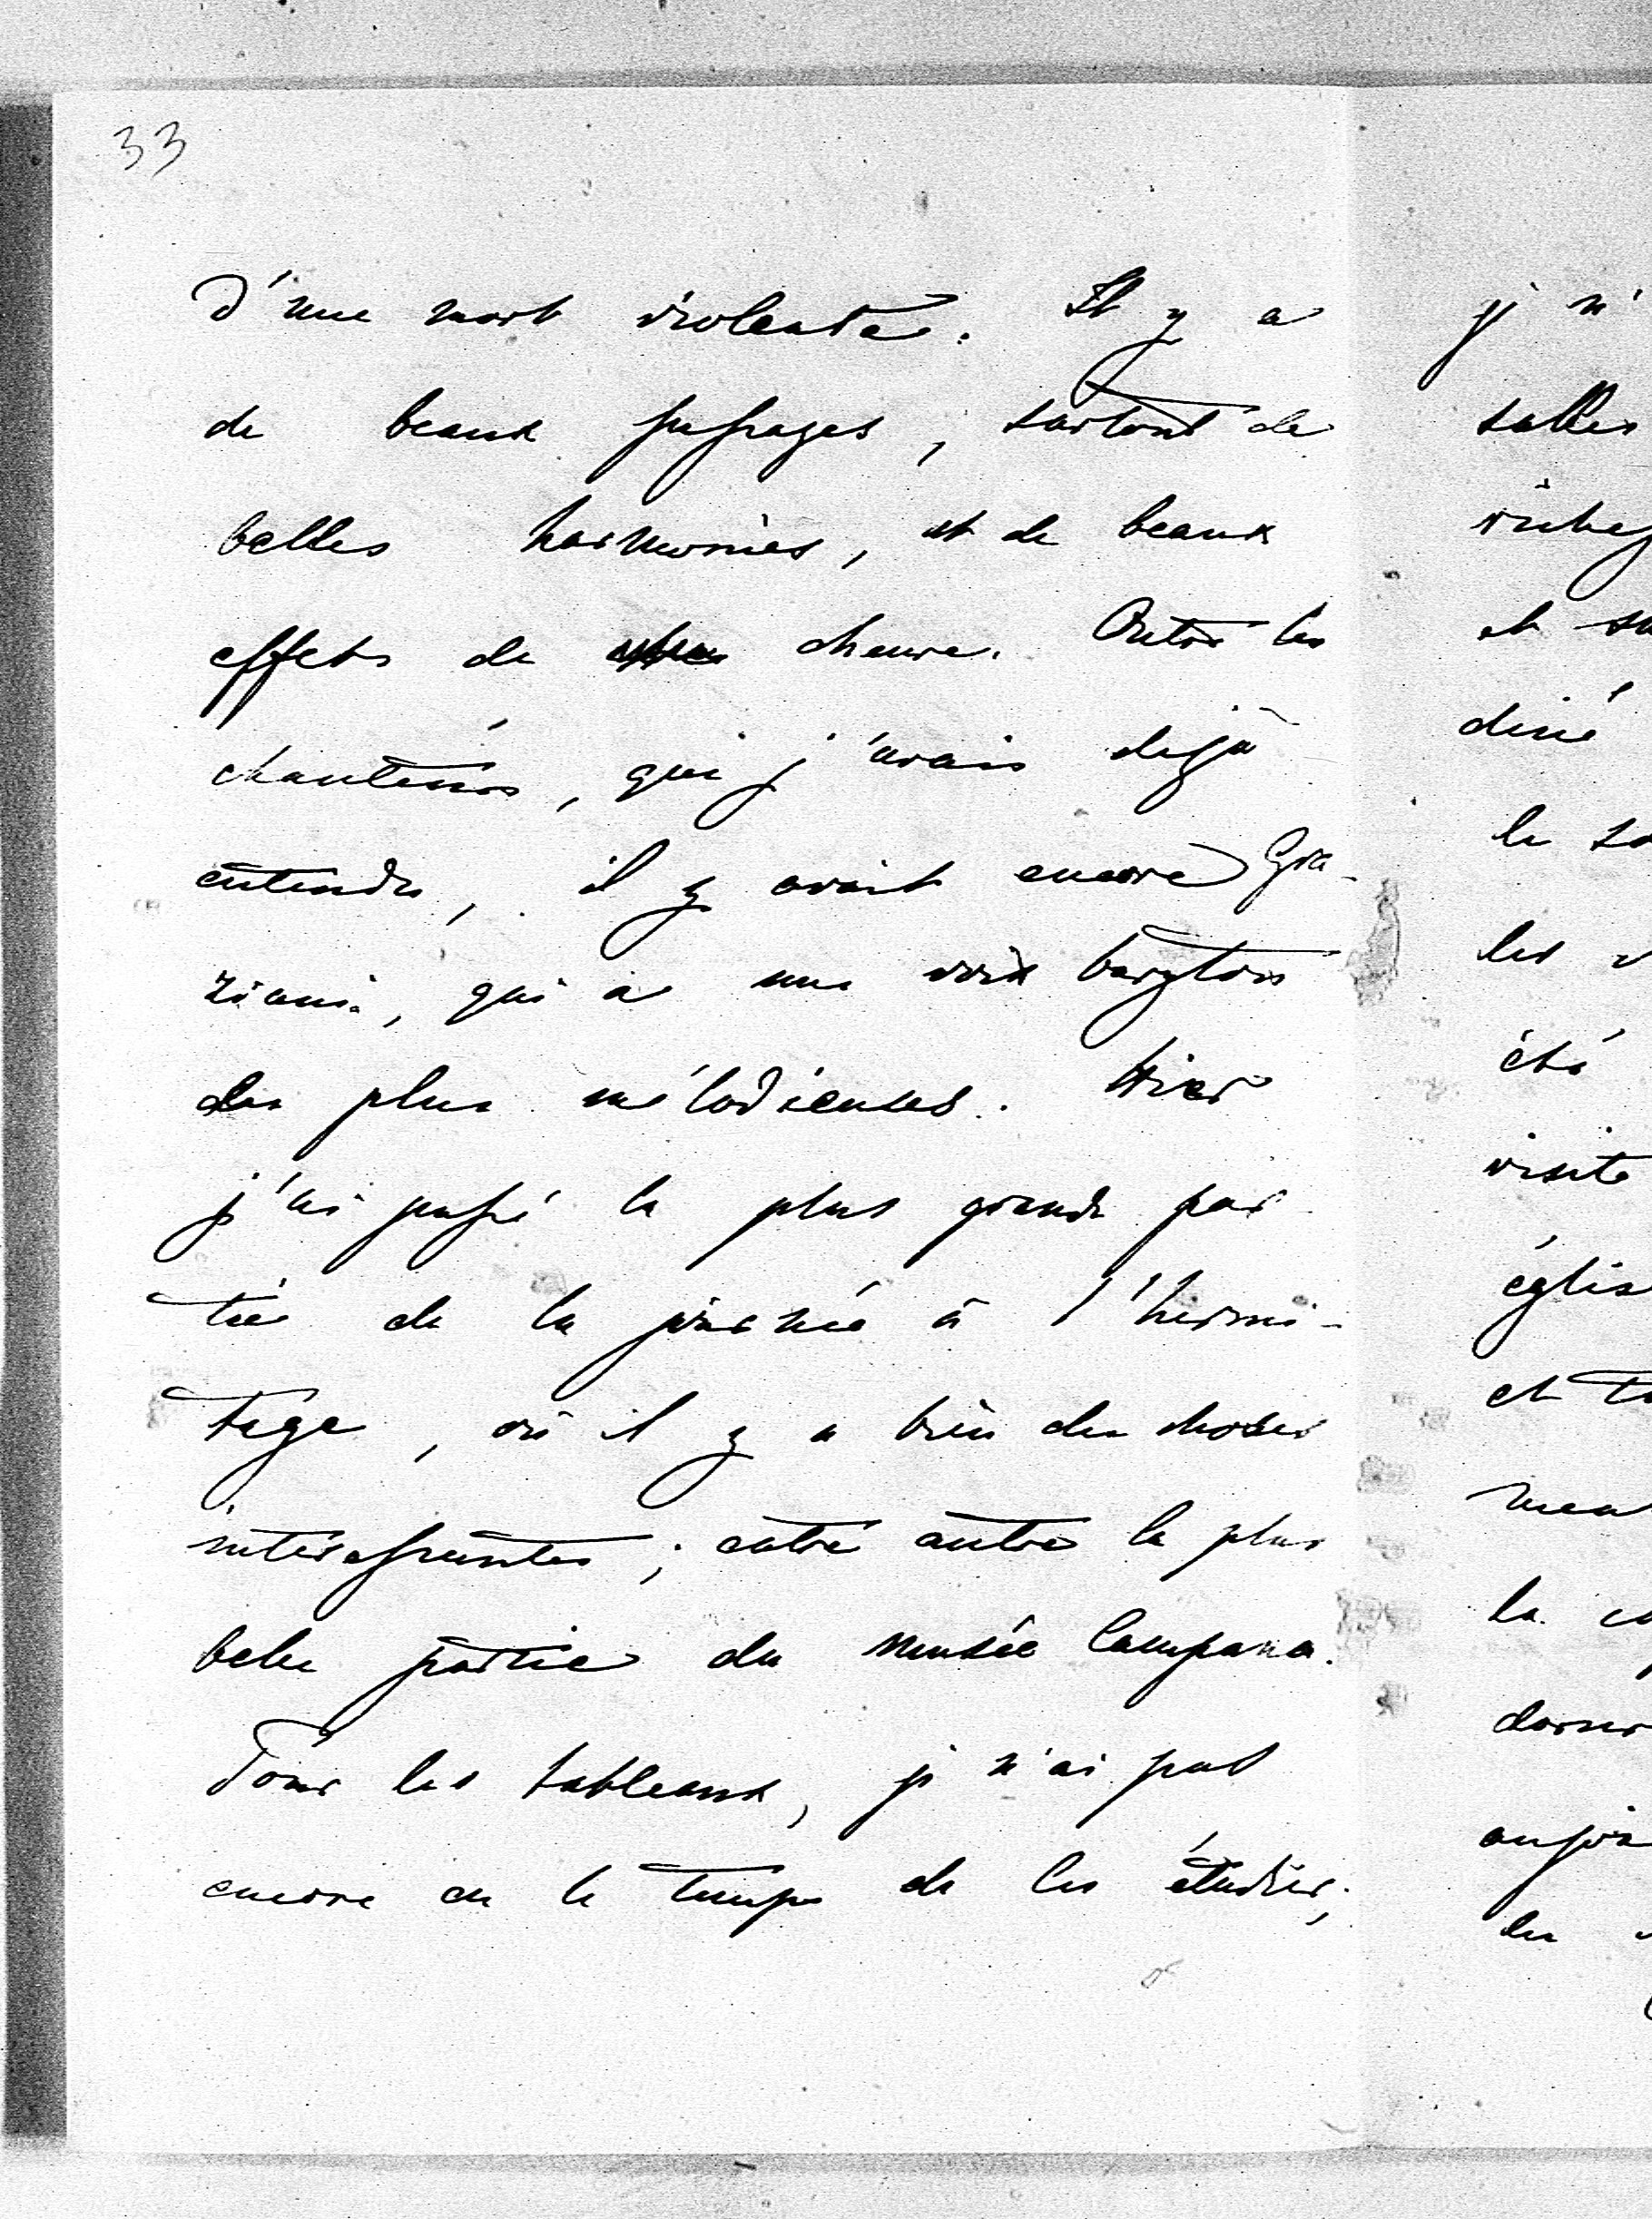 33
d'une mort violente. Il y a
de beaux passages, surtout de
belles harmonies, et de beaux
effets de choeurs. Outre les
chanteurs, que j'avais dejà
entendu, il y avait encore Gra-
ziani, qui a une voix baryton
des plus mélodieuses. Hier
j'ai passé la plus grande par
tie de la journé à l'hermi-
tage, où il y a bien des choses
intéressantes; entre autre la plus
belle partie du musée Campana.
Pour les tableaux, je n'ai pas
encore eu le temps de les étudier;
je n'
salles
riches
et su
diné
le so
les v
été
visite
église
et to
la
les